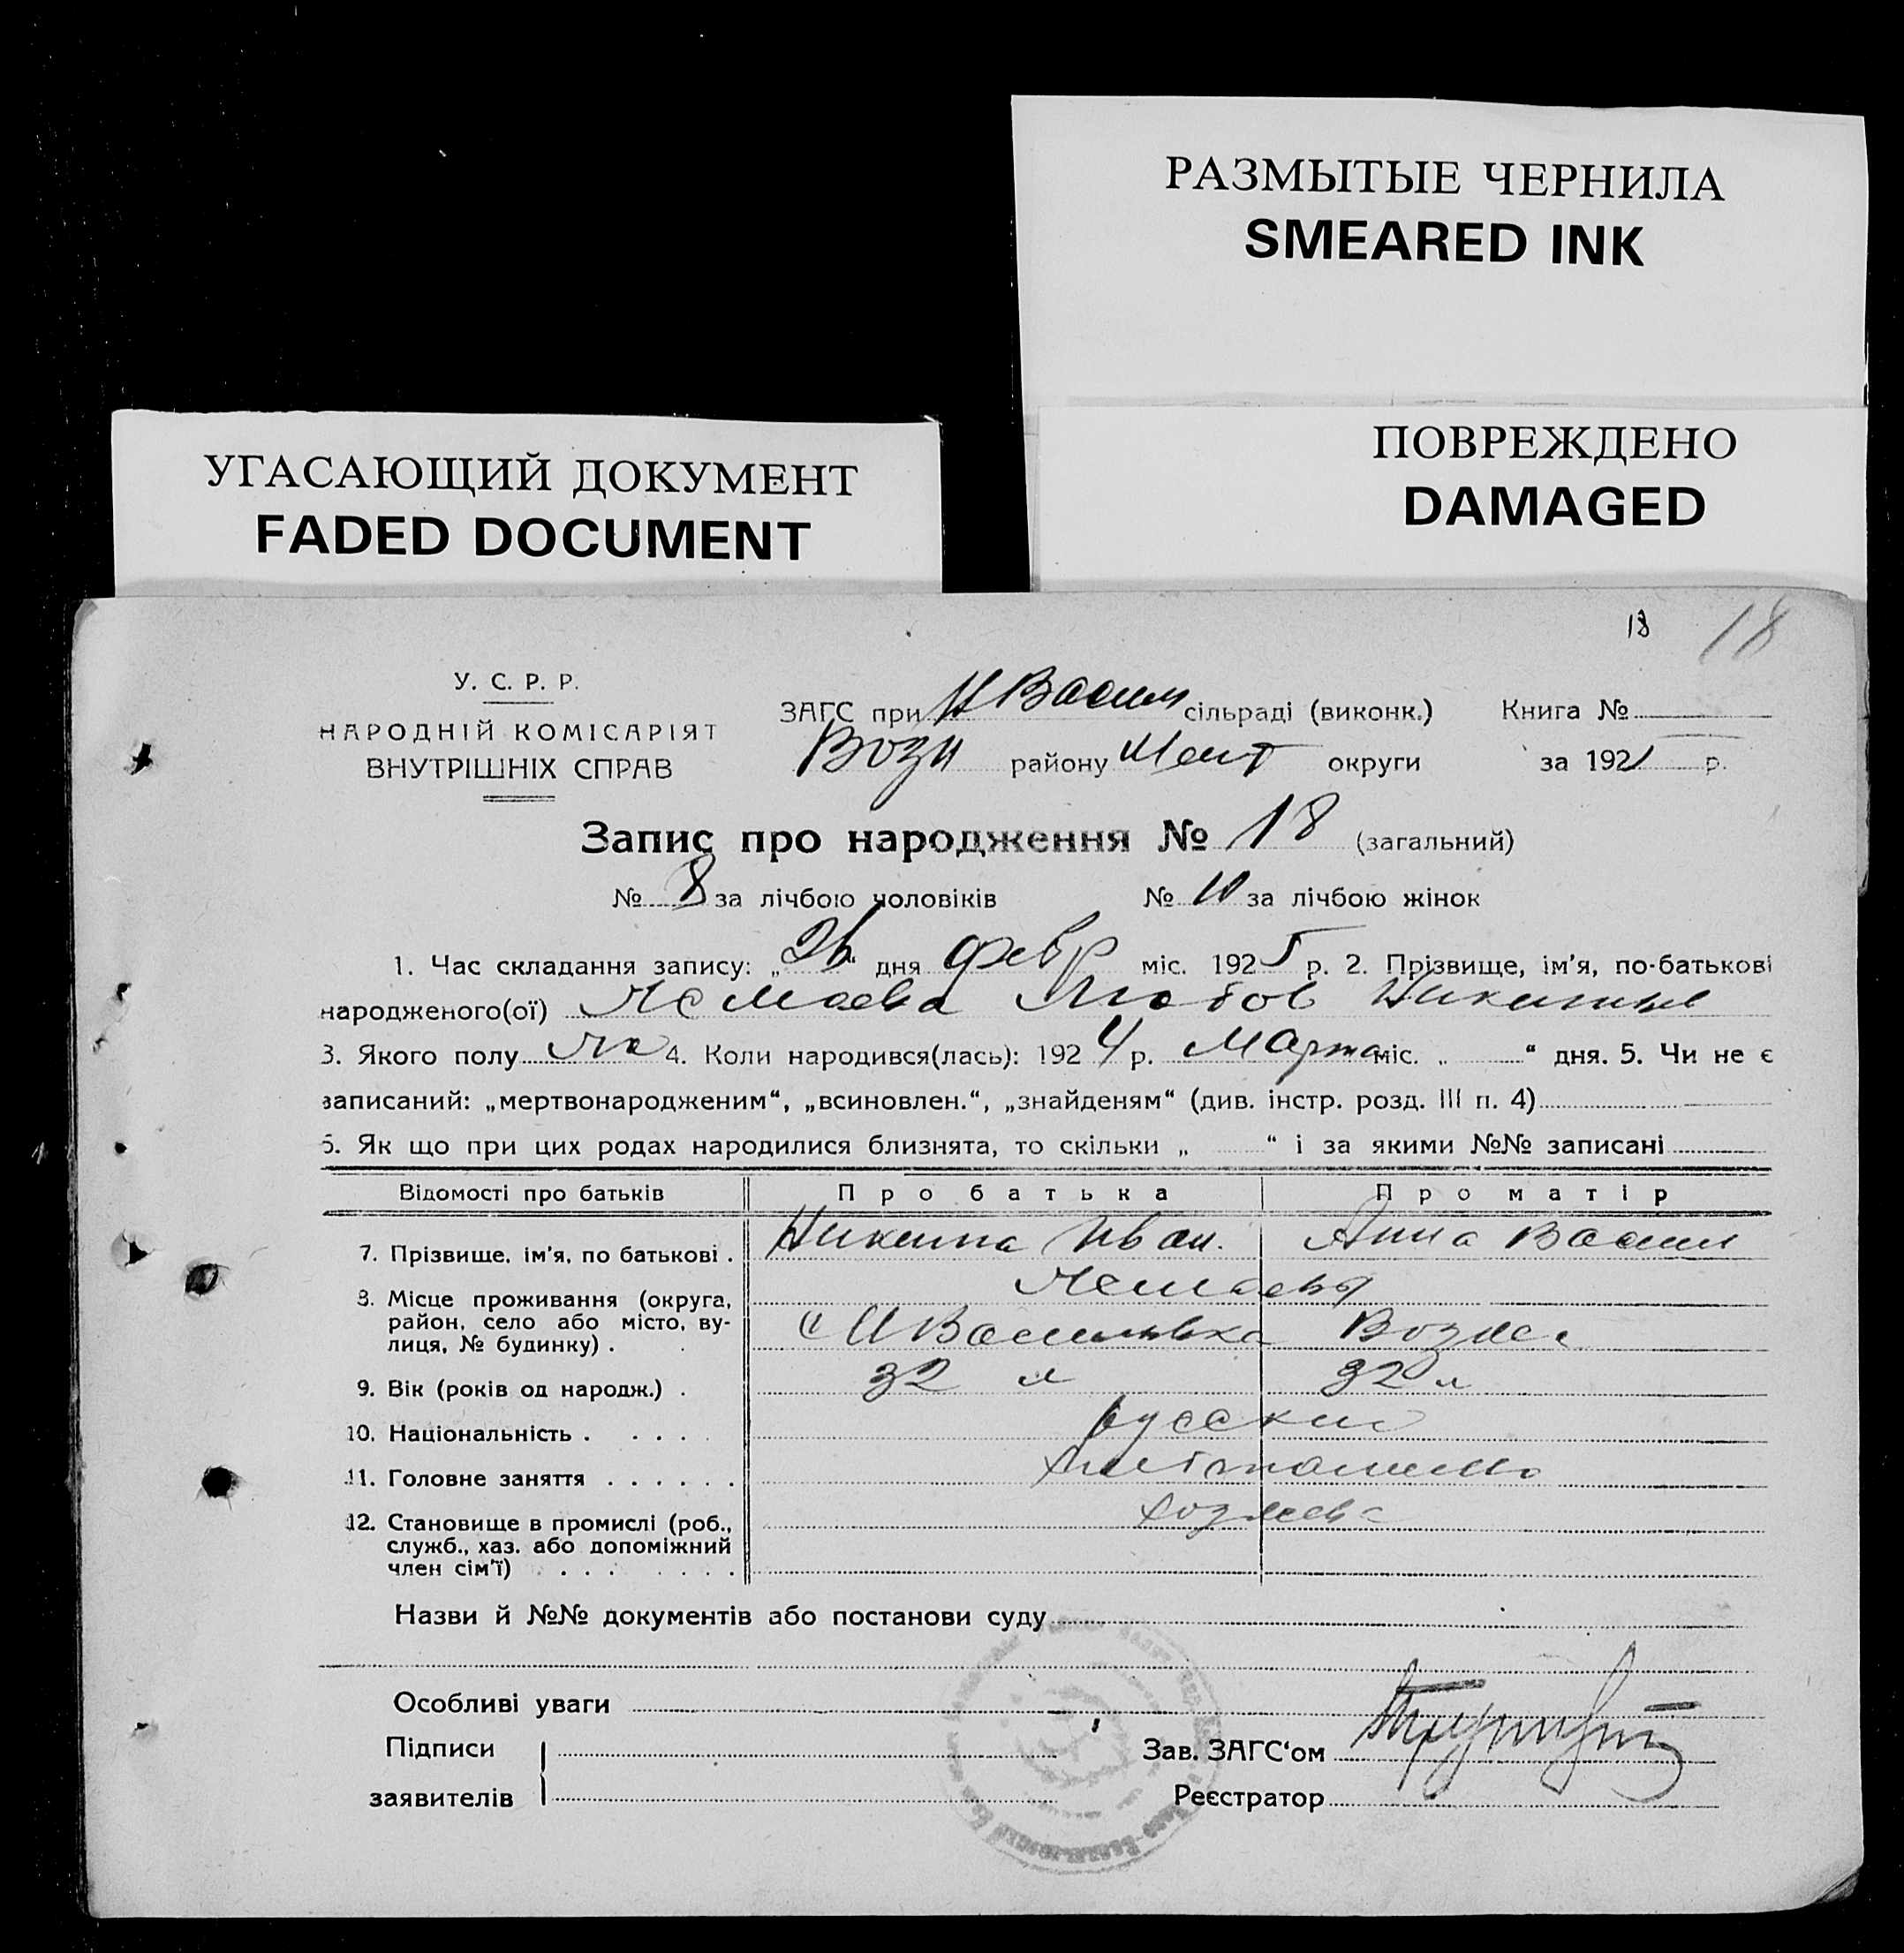 РАЗМЫТЫЕ ЧЕРНИЛА
SMEARED INK
УГАСАЮЩИЙ ДОКУМЕНТ
FADED DOCUMENT
ПОВРЕЖДЕНО
DAMAGED
18 18
У. С. Р. Р.
НАРОДНІЙ КОМІСАРІЯТ
ВНУТРІШНІХ СПРАВ
ЗАГС при Н Васил сільраді (виконк.) Книга №
Возн району Мелт округи за 192 р.
Запис про народження № 18 (загальний)
№ 8 за лічбою чоловіків № 10 за лічбою жінок
1. Час складання запису: „26“ дня февр міс. 1925 р. 2. Прізвище, ім’я, по-батькові
народженого(ої) Любов Никитина
3. Якого полу 4. Коли народився(лась): 1924 р. Марта міс. „ “ дня. 5. Чи не є
записаний: „мертвонародженим“, „всиновлен.“, „знайденям“ (див. інстр. розд. III п. 4)
6. Як що при цих родах народилися близнята, то скільки „ “ і за якими №№ записані
Відомості про батьків Про батька Про матір
7. Прізвище, ім’я, по батькові . Никита Иван. Анна Васил
8. Місце проживання (округа,
район, село або місто, ву-
лиця, № будинку) . . с Н Васильевка
9. Вік (років од народж.) . 32 л 32 л
10. Національність . . . . . русские
11. Головне заняття . . . . . .
12. Становище в промислі (роб.,
служб., хаз. або допоміжний
член сім’ї) . . . . . . . . хозяева
Назви й №№ документів або постанови суду
Особливі уваги
Підписи
заявителів
Зав. ЗАГС‘ом
Реєстратор